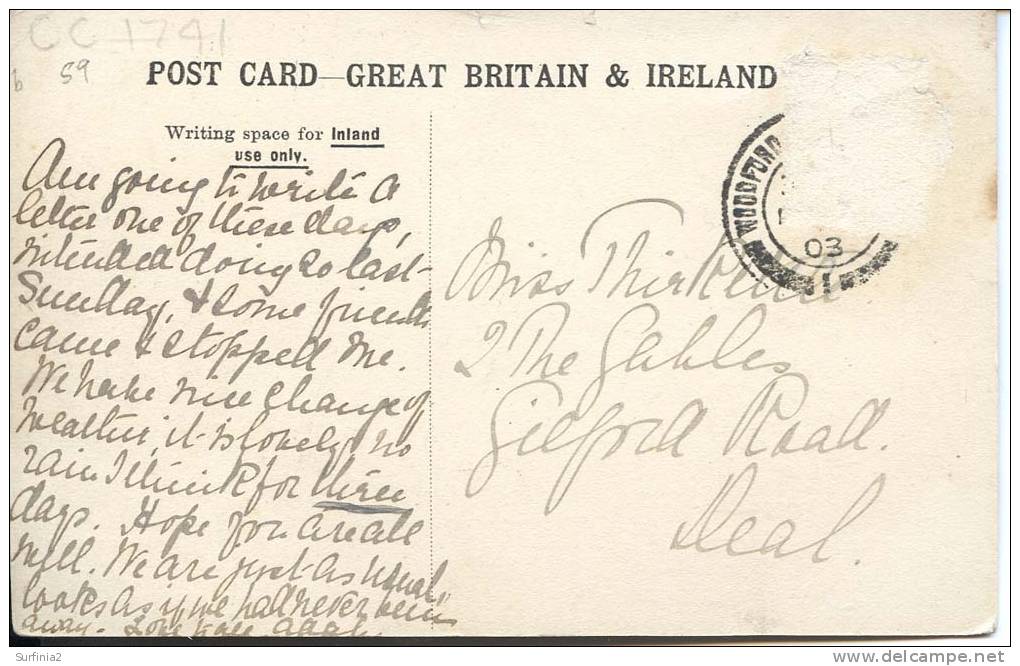 CC 1741
59
POST CARD—GREAT BRITAIN & IRELAND
Writing space for Inland
use only.
Am going to write a
letter one of these days,
intended doing so last
Sunday, & some friends
came & stopped me.
We have nice change of
weather, it is lovely, no
rain I think for three
days. Hope you are all
well. We are just as usual,
looks as if we had never been
away. Love to all
WOODFORD
03
1
Miss
2 The Gables
Gilford Road.
Deal.
Surfinia2
delcampe.net